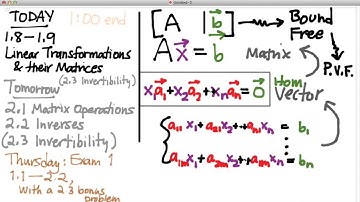 TODAY
1:00 end
1.8-1.9
Linear Transformations
& their Matrices
Tomorrow
(2.3 Invertibility)
2.1 Matrix Operations
2.2 Inverses
(2.3 Invertibility)
Thursday: Exam 1
1.1-2.2,
with a 2.3 bonus
problem
[A | b]
Bound
Free
Ax = b
Matrix
P.V.F.
x₁a₁+x₂a₂+...xₙaₙ=0
Hom
Vector
a₁₁x₁+a₂₁x₂+...aₙ₁xₙ = b₁
a₁ₘx₁+a₂ₘx₂+...aₙₘxₙ = bₙ